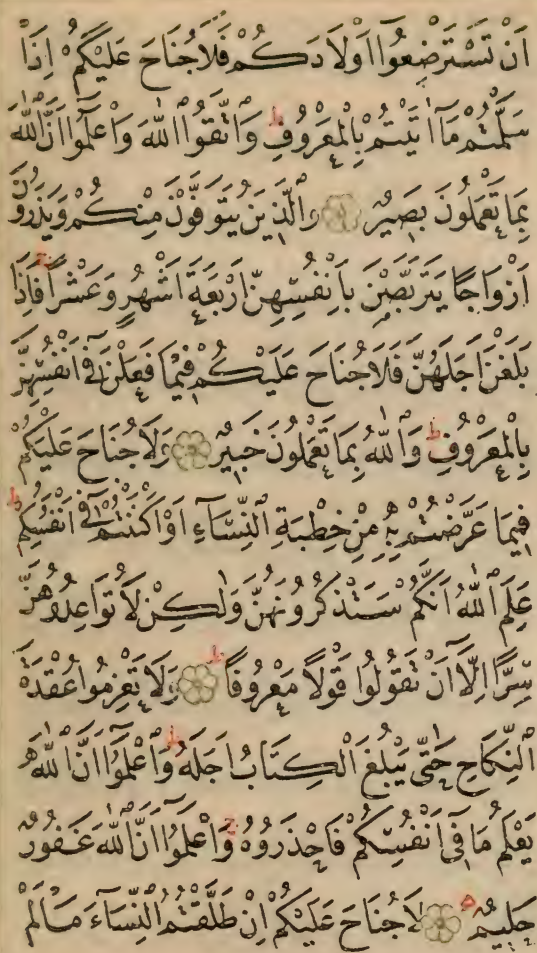 اَنْ تَسْتَرْضِعُوا اَوْلَادَكُمْ فَلَا جُنَاحَ عَلَيْكُمْ اِذَا
سَلَّمْتُمْ مَا اٰتَيْتُمْ بِالْمَعْرُوفِ ط وَاتَّقُوا اللّٰهَ وَاعْلَمُوا اَنَّ اللّٰهَ
بِمَا تَعْمَلُونَ بَصِيرٌ وَالَّذِينَ يُتَوَفَّوْنَ مِنْكُمْ وَيَذَرُونَ
اَزْوَاجًا يَتَرَبَّصْنَ بِاَنْفُسِهِنَّ اَرْبَعَةَ اَشْهُرٍ وَعَشْرًا ج فَاِذَا
بَلَغْنَ اَجَلَهُنَّ فَلَا جُنَاحَ عَلَيْكُمْ فِيمَا فَعَلْنَ فِي اَنْفُسِهِنَّ
بِالْمَعْرُوفِ ط وَاللّٰهُ بِمَا تَعْمَلُونَ خَبِيرٌ وَلَا جُنَاحَ عَلَيْكُمْ
فِيمَا عَرَّضْتُمْ بِهِ مِنْ خِطْبَةِ النِّسَاءِ اَوْ اَكْنَنْتُمْ فِي اَنْفُسِكُمْ ط
عَلِمَ اللّٰهُ اَنَّكُمْ سَتَذْكُرُونَهُنَّ وَلٰكِنْ لَا تُوَاعِدُوهُنَّ
سِرًّا اِلَّا اَنْ تَقُولُوا قَوْلًا مَعْرُوفًا ط وَلَا تَعْزِمُوا عُقْدَةَ
النِّكَاحِ حَتّٰى يَبْلُغَ الْكِتَابُ اَجَلَهُ ط وَاعْلَمُوا اَنَّ اللّٰهَ
يَعْلَمُ مَا فِي اَنْفُسِكُمْ فَاحْذَرُوهُ ج وَاعْلَمُوا اَنَّ اللّٰهَ غَفُورٌ
حَلِيمٌ لَا جُنَاحَ عَلَيْكُمْ اِنْ طَلَّقْتُمُ النِّسَاءَ مَا لَمْ